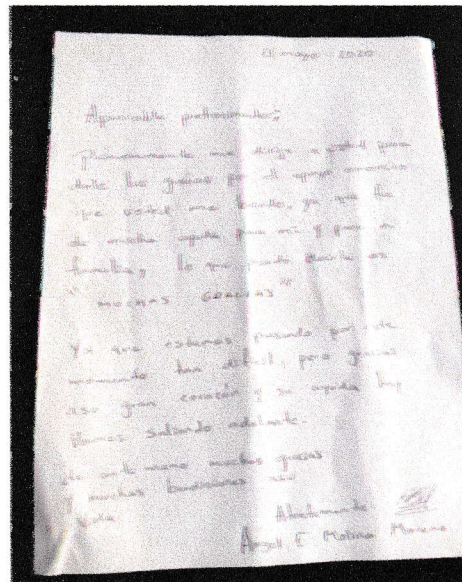 mayo 2020
Primeramente me dirijo a usted para
darle las gracias por el apoyo
que usted me brindo, ya que fue
de mucha ayuda para mi y para mi
familia, lo que puedo decirle es
" MUCHAS GRACIAS "
Ya que estamos pasando por este
momento tan dificil, pero gracias
a su gran corazón y su ayuda hoy
saliendo adelante.
muchas gracias
y muchas bendiciones
Atentamente
Angel E Molina Moreno